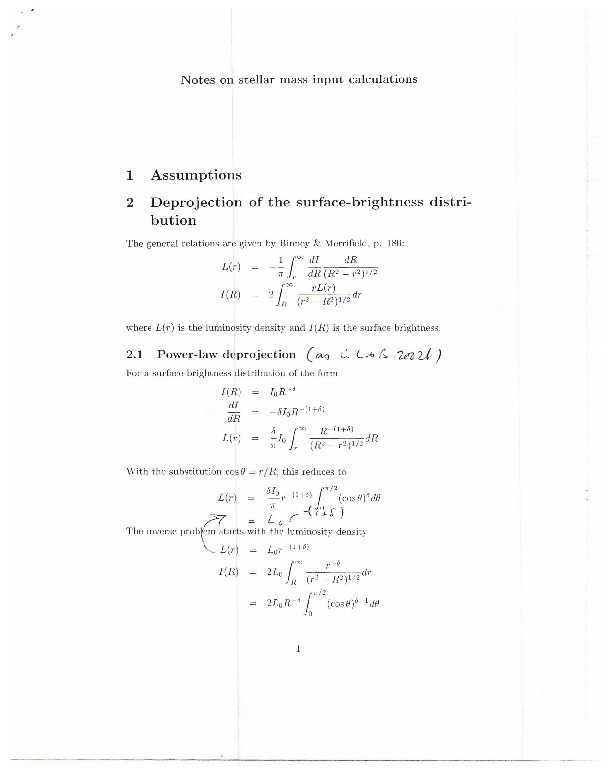 Notes on stellar mass input calculations
1 Assumptions
2 Deprojection of the surface-brightness distri-
bution
The general relations are given by Binney & Merrifield, p. 180:
L(r) = −(1/π) ∫_r^∞ (dI/dR) dR/(R² − r²)^{1/2}
I(R) = 2 ∫_R^∞ rL(r)/(r² − R²)^{1/2} dr
where L(r) is the luminosity density and I(R) is the surface brightness.
2.1 Power-law deprojection (as
For a surface-brightness distribution of the form
I(R) = I₀R^{−δ}
dI/dR = −δI₀R^{−(1+δ)}
L(r) = (δ/π) I₀ ∫_r^∞ R^{−(1+δ)}/(R² − r²)^{1/2} dR
With the substitution cos θ = r/R, this reduces to
L(r) = (δI₀/π) r^{−(1+δ)} ∫^{π/2} (cos θ)^δ dθ
= L₀ r^{−(1+δ)}
The inverse problem starts with the luminosity density
L(r) = L₀r^{−(1+δ)}
I(R) = 2L₀ ∫_R^∞ r^{−δ}/(r² − R²)^{1/2} dr
= 2L₀R^{−δ} ∫_0^{π/2} (cos θ)^{δ−1} dθ
1